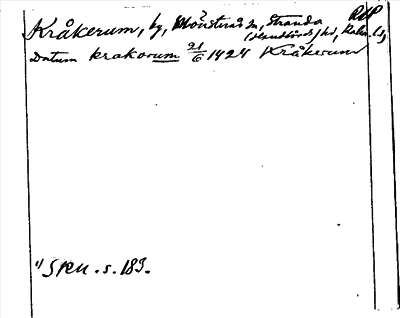 RUP
Kråkerum, by, Mönsterås sn, Stranda
(Handbörds) hd, Kalm. l.
Datum krakorum 21/6 1424 Kråkerum
1) SRU . s. 183.